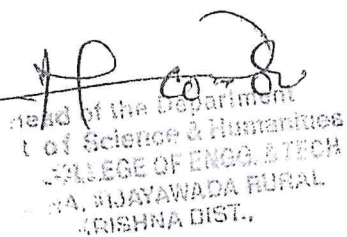 Head of the Department
t of Science & Humanities
COLLEGE OF ENGG. & TECH
VIJAYAWADA RURAL
KRISHNA DIST.,